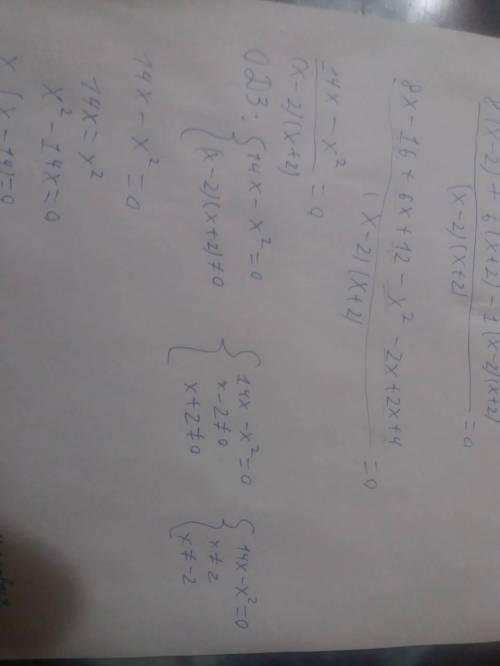 8(x-2) + 6(x+2) - 1(x-2)(x+2)
(x-2)(x+2)
=0
8x - 16 + 6x + 12 - x² - 2x + 2x + 4
(x-2)(x+2)
=0
14x - x²
(x-2)(x+2)
=0
ОДЗ: { 14x - x² = 0
(x-2)(x+2) ≠ 0
{ 14x - x² = 0
x - 2 ≠ 0
x + 2 ≠ 0
{ 14x - x² = 0
x ≠ 2
x ≠ -2
14x - x² = 0
14x = x²
x² - 14x = 0
x(x-14)=0